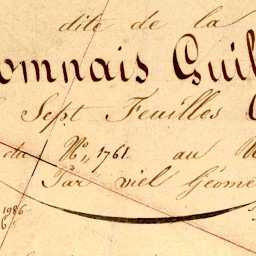 dite de la
omnais Guil
Sept Feuilles
du N°, 1761 au
Par miel Géome
1986